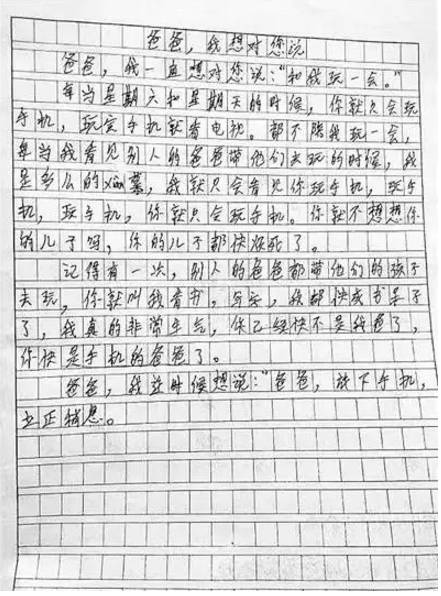 爸爸，我想对您说
爸爸，我一直想对您说：“和我玩一会。”
每当星期六和星期天的时候，你就只会玩
手机，玩完手机就看电视。都不陪我玩一会，
每当我看见别人的爸爸带他们去玩的时候，我
是多么的xian慕，我就只会看见你玩手机，玩手
机，玩手机，你就只会玩手机。你就不想想你
的儿子吗，你的儿子都快烦死了。
记得有一次，别人的爸爸都带他们的孩子
去玩，你就叫我看书，写字，我都快成书呆子
了，我真的非常生气，你已经快不是我爸了，
你快是手机的爸爸了。
爸爸，我这时候想说：“爸爸，放下手机，
立正稍息。